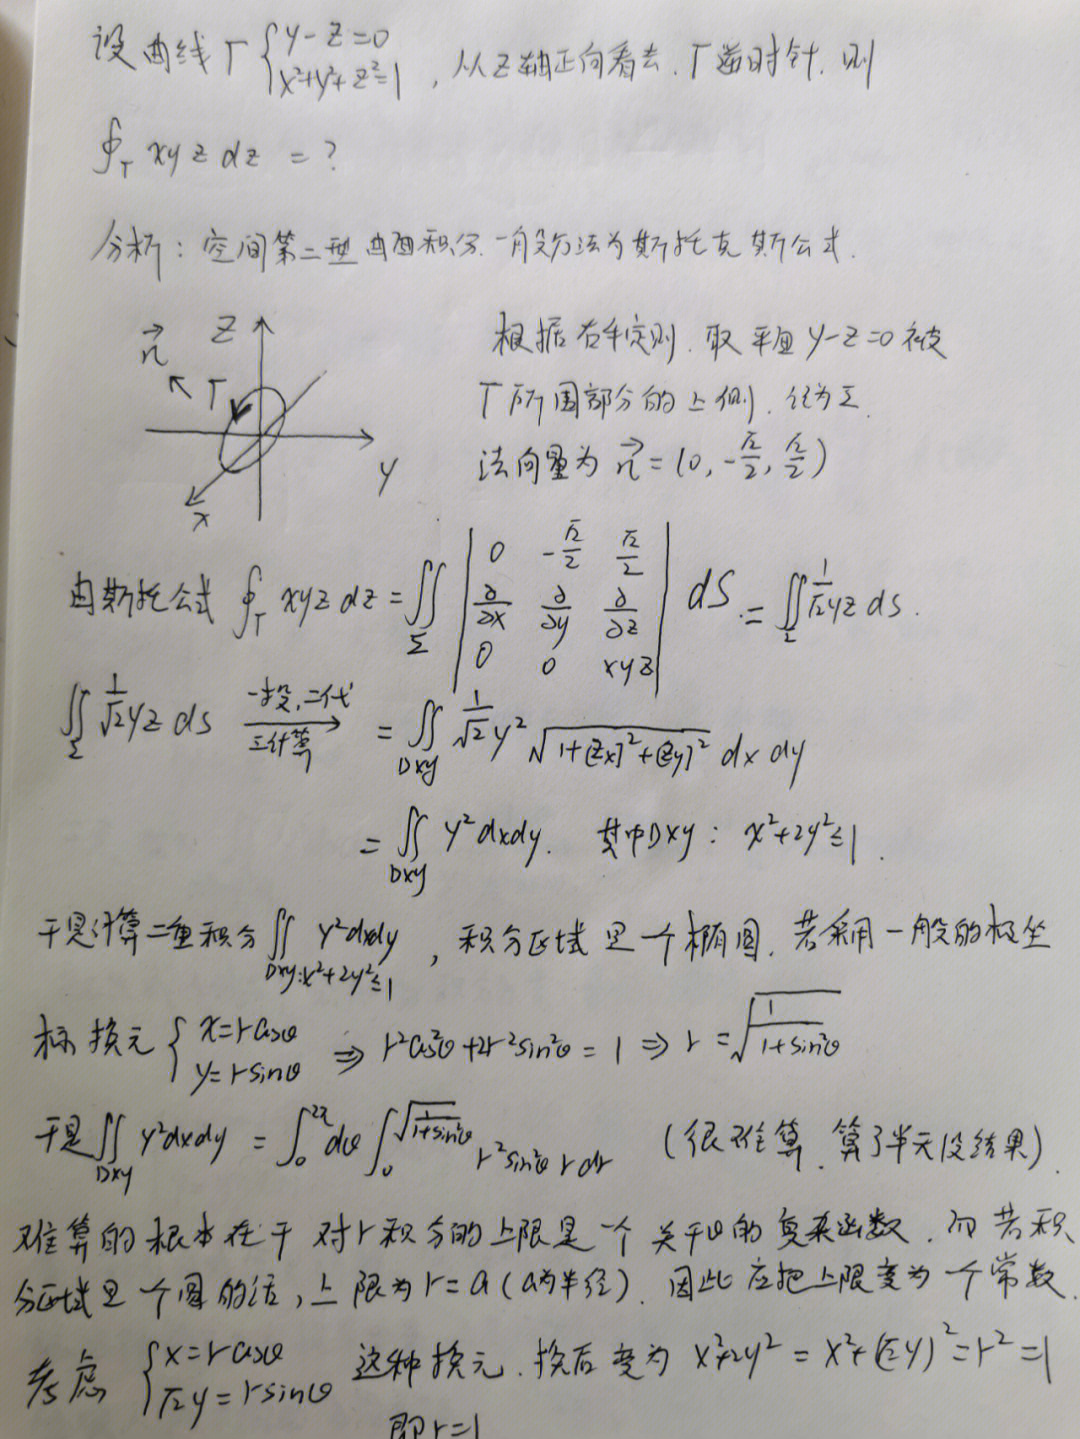 设曲线Γ {y-z=0 x²+y²+z²=1 ,从z轴正向看去,Γ逆时针,则
∮_Γ xyz dz = ?
分析:空间第二型曲面积分.一般方法为斯托克斯公式.
z n⃗ Γ y x
根据右手定则.取平面y-z=0被
Γ所围部分的上侧.徑为Σ.
法向量为 n⃗ = (0, -√2/2, √2/2)
由斯托公式 ∮_Γ xyz dz = ∬_Σ |0 -√2/2 √2/2; ∂/∂x ∂/∂y ∂/∂z; 0 0 xyz| dS. = ∬_Σ 1/√2 yz dS.
∬_Σ 1/√2 yz dS 一投,二代 三计算 → = ∬_Dxy 1/√2 y² √(1+[Zx]²+[Zy]²) dx dy
= ∬_Dxy y² dxdy. 其中Dxy: x²+2y²≤1.
于是计算二重积分 ∬_{Dxy:x²+2y²≤1} y²dxdy ,积分区域是一个椭圆.若采用一般的极坐
标换元 {x=rcosθ y=rsinθ ⇒ r²cos²θ+2r²sin²θ=1 ⇒ r=√(1/(1+sin²θ))
于是 ∬_Dxy y²dxdy = ∫_0^{2π} dθ ∫_0^{√(1/(1+sin²θ))} r²sin²θ r dr (很难算.算了半天没结果).
难算的根本在于对r积分的上限是一个关于θ的复杂函数.而若积
分区域是一个圆的话,上限为r=a(a为半径).因此应把上限变为一个常数.
考虑 {x=rcosθ √2y=rsinθ 这种换元.换后变为 x²+2y² = x²+(√2y)²=r²=1
即r=1